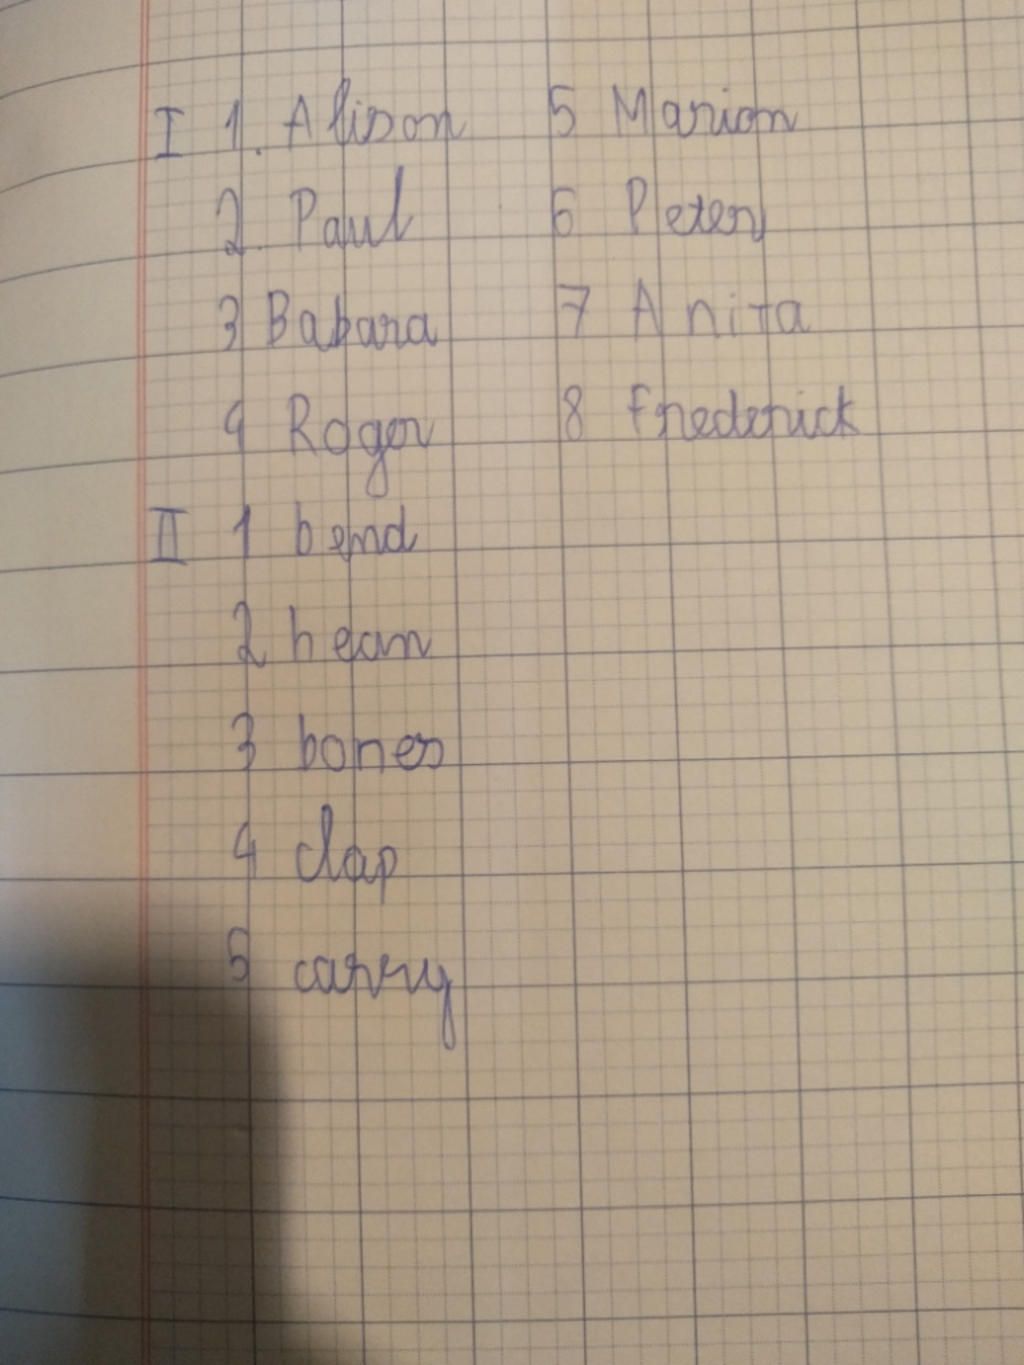 I 1. Alison 5 Marion
2. Paul 6 Peter
3 Babara 7 Anita
4 Roger 8 Frederick
II 1 bend
2 hear
3 bones
4 clap
5 carry